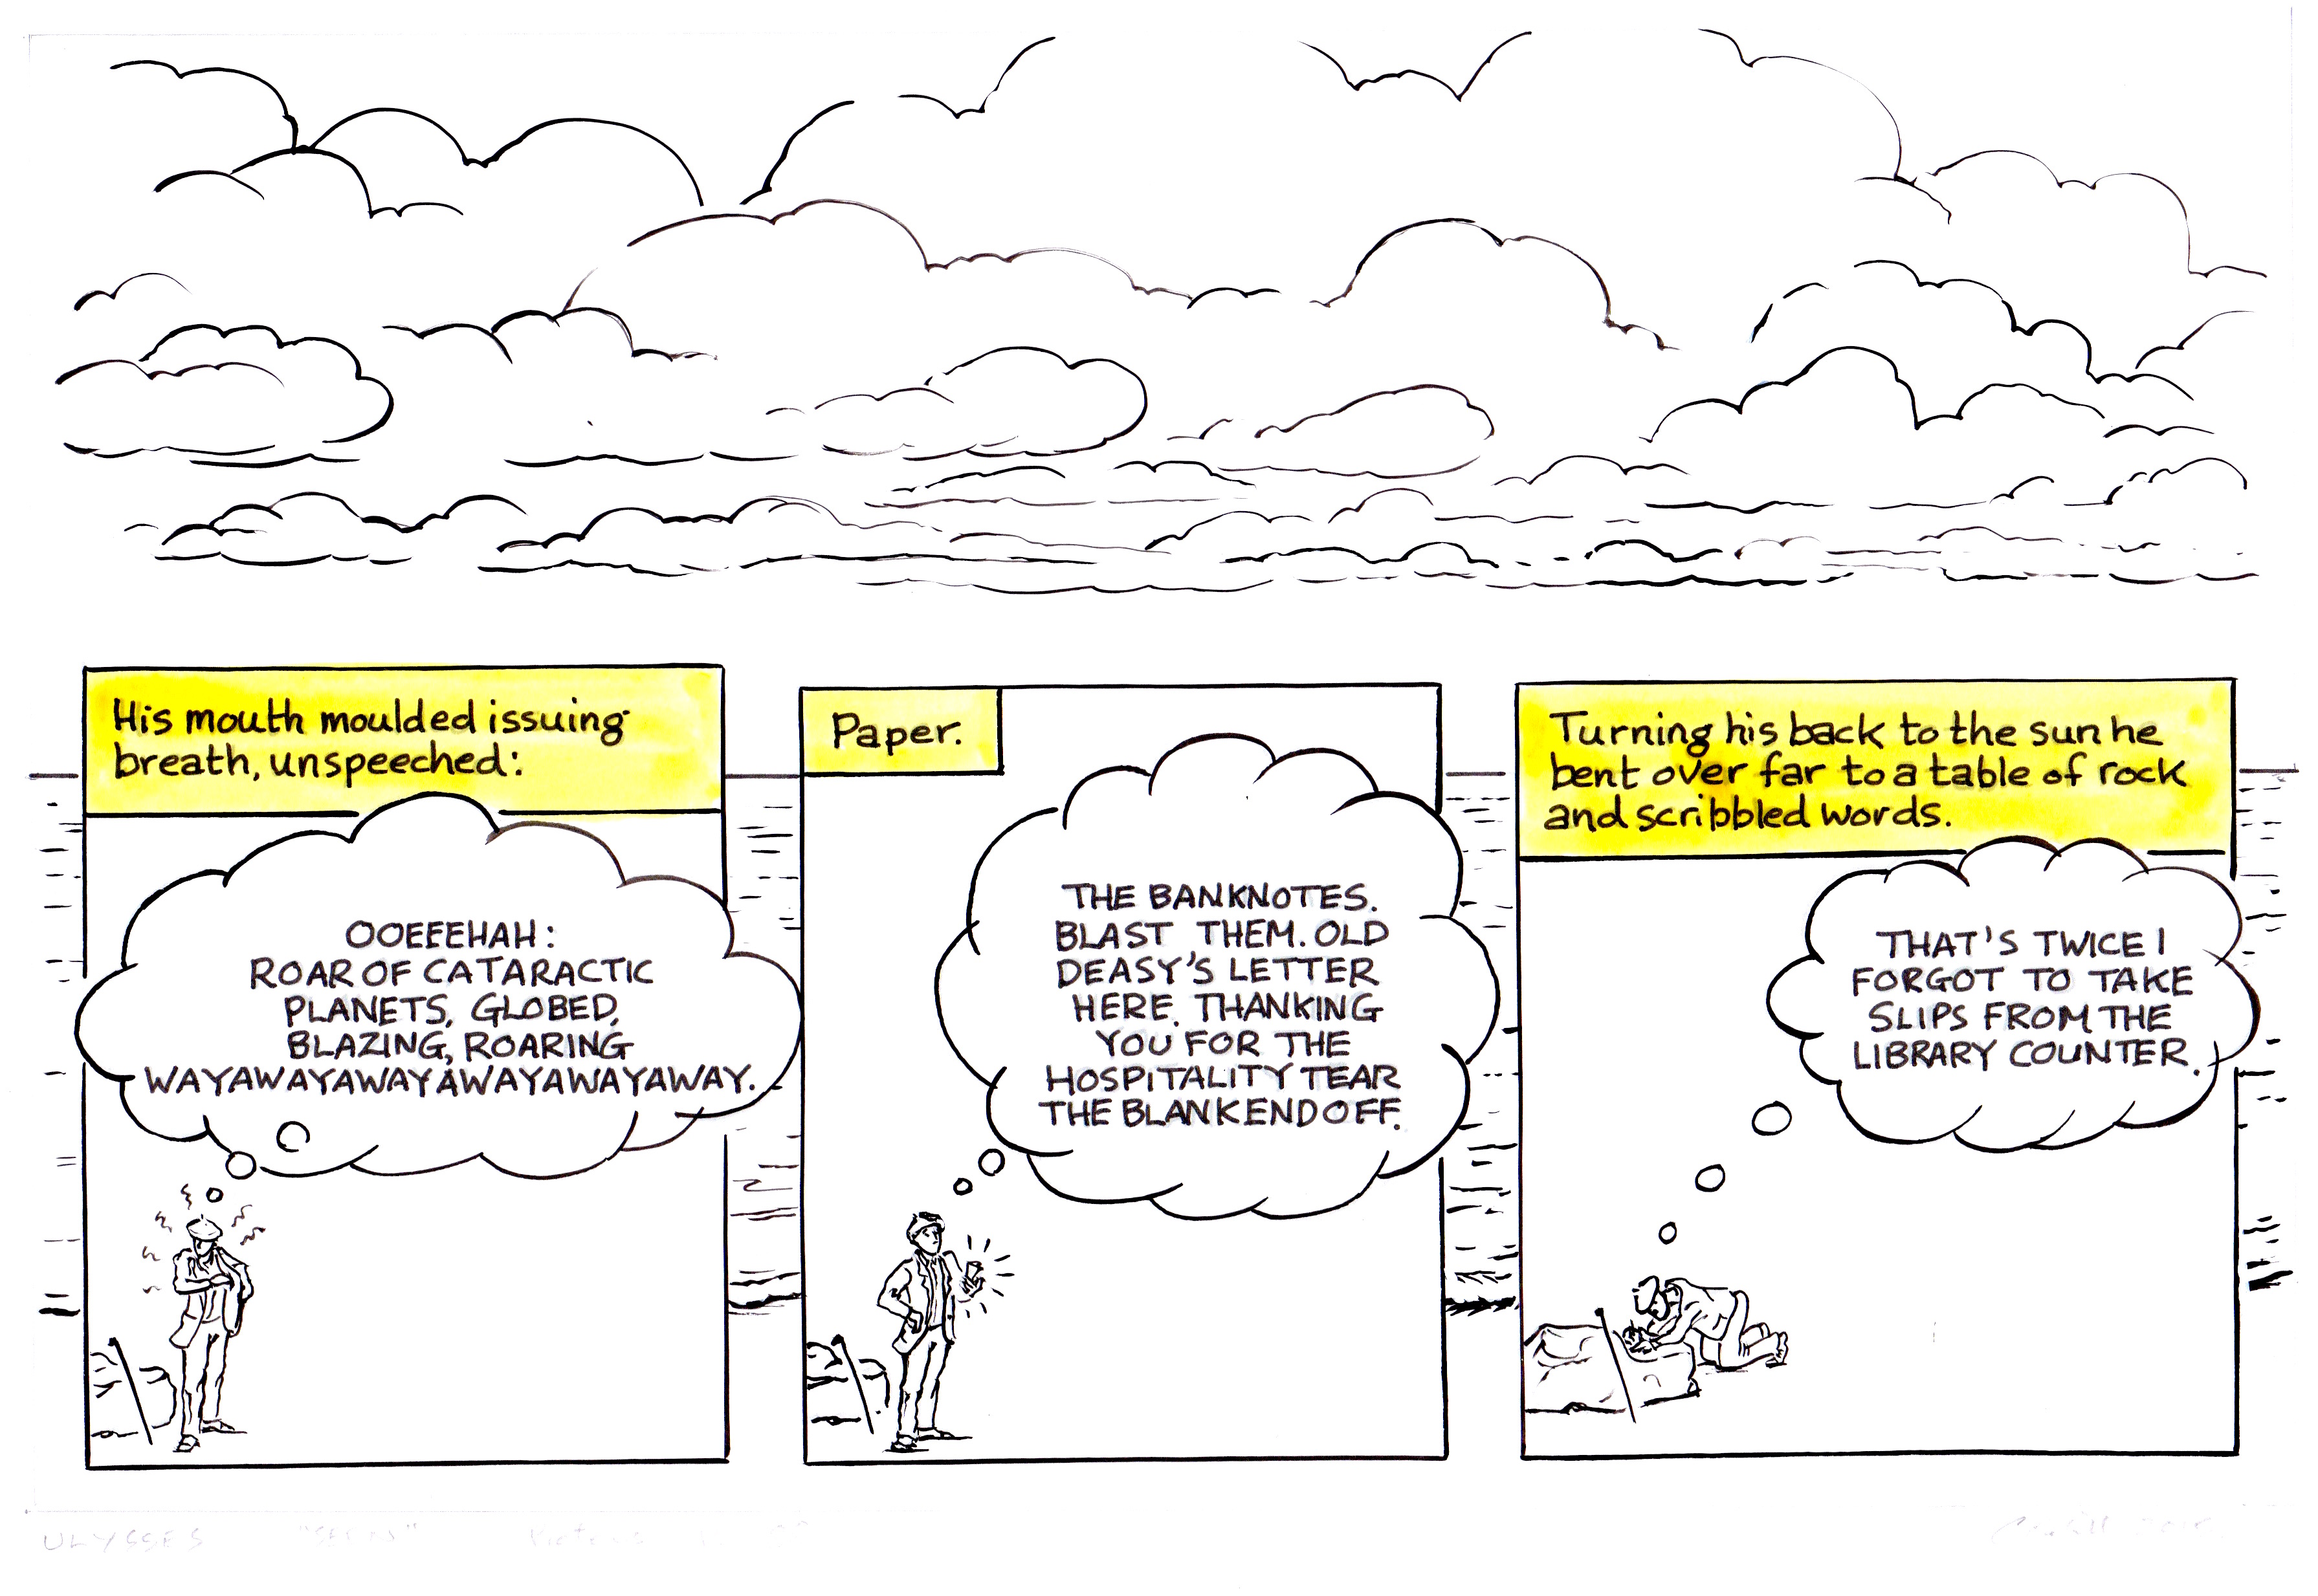 His mouth moulded issuing
breath, unspeeched:
OOEEEHAH:
ROAR OF CATARACTIC
PLANETS, GLOBED,
BLAZING, ROARING
WAYAWAYAWAYAWAYAWAYAWAY.
Paper.
THE BANKNOTES.
BLAST THEM. OLD
DEASY'S LETTER
HERE. THANKING
YOU FOR THE
HOSPITALITY TEAR
THE BLANK END OFF.
Turning his back to the sun he
bent over far to a table of rock
and scribbled words.
THAT'S TWICE I
FORGOT TO TAKE
SLIPS FROM THE
LIBRARY COUNTER.
ULYSSES